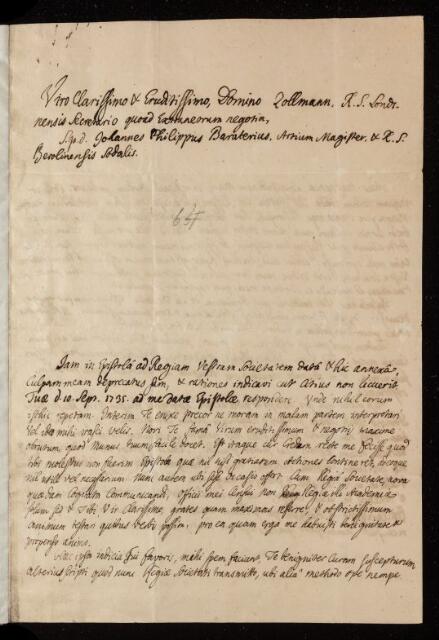 Viro Clarissimo & Eruditissimo, Domino Zollmann. R. S. Londi-
nensis Secretario quoad Extraneorum negotia,
S. p. d. Johannes Philippus Baraterius. Artium Magister. & R. S.
Berolinensis Sodalis.
Jam in Epistolâ ad Regiam Vestram Societatem datâ & hic annexâ,
Culpam meam deprecatus sum, & rationes indicavi cur citius non licuerit
Tuæ d. 10. Sept. 1735. ad me datæ Epistolæ respondere. Unde nihil eorum
isthic repetam. Interim Te enixe precor ne moram in malam partem interpretari
vel ibi mihi velis. Novi Te famâ Virum eruditissimum & negotiis maxime
obrutum, quod munus tuum facile docet. Est itaque cur credam recte me fecisse quod
tibi molestus non fuerim Epistola quæ nil nisi gratiarum actiones contineret, ideoque
nil utile vel necessarium. Nunc autem ubi sese occasio offert cum Regia Societate nova
quædam cogitata communicandi, officii mei censui non Regiæ illi Academiæ
solum sed & Tibi Vir Clarissime, grates quam maximas referre, & obstrictissimum
animum testari quibus verbis possum, pro ea quam erga me habuisti benignitate &
propenso animo.
Hæc ipsa indicia Tui favoris, mihi spem faciunt, Te benigniter curam suscepturum
alterius scripti quod nunc Regiæ Societati transmitto, ubi aliâ methodo ope nempe